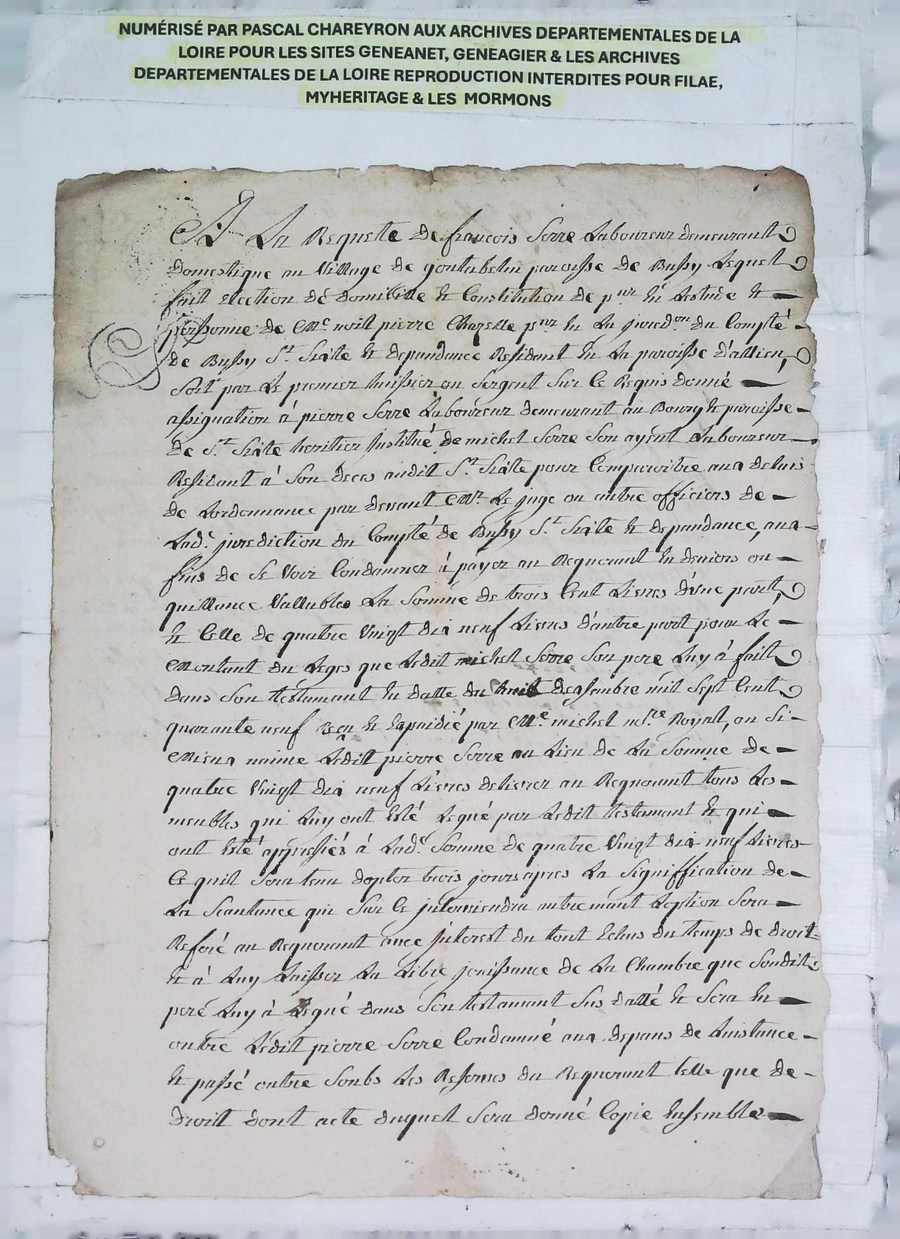 NUMÉRISÉ PAR PASCAL CHAREYRON AUX ARCHIVES DEPARTEMENTALES DE LA
LOIRE POUR LES SITES GENEANET, GENEAGIER & LES ARCHIVES
DEPARTEMENTALES DE LA LOIRE REPRODUCTION INTERDITES POUR FILAE,
MYHERITAGE & LES MORMONS
A La Requette de francois Serre Laboureur demeurant
domestique au village de paroisse de Bussy Lequel
fait Election de domicille et Constitution de pur en Lestude et
personne de Me noit pierre Chazelle pur en La juredon du Compté
de Bussy St Sixte et dependance Resident en La paroisse d'allieu,
Soit par Le premier huissier ou Sergent Sur Ce Requis donné
assignation à pierre Serre Laboureur demeurant au Bourg et paroisse
de St Sixte heritier Institué de michel Serre Son ayent Laboureur
Resitant à Son deces audit St Sixte pour Comparoitre aux delais
de Lordonnance par devant Mr Le juge ou autre officiers de
Lade jurediction du Compté de Bussy St Sixte et dependance, aux
fins de Se Voir Condamner à payer au Requerant En deniers ou
quillance Vallubles La Somme de trois Cent Livres d'une part,
et Celle de quatre Vingt dix neuf Livres d'autre part pour Le
montant du Leges que Ledit michel Serre Son pere Luy à fait
dans Son testamant en datte du huit dessembre mil Sept Cent
quarante neuf reçu et Expaidié par Me michel nre Royal, ou Si
mieux n'aime Ledit pierre Serre au Lieu de La Somme de
quatre Vingt dix neuf Livres delivrer au Requerant tous Les
meubles qui Luy ont Eté Legué par Ledit testamant et qui
ont Eté appressiés à Lade Somme de quatre Vingt dix neuf Livres
Ce quil Sera tenu dopter trois jours apres La Signiffication de
La Scantance qui Sur Ce jnterviendra autremant Loption Sera
Referé au Requerant avec jnterest du tout Echus du temps de droit
et à Luy Laisser La Libre jouissance de La Chambre que Sondit
pere Luy à Legué dans Son testamant Sus datté et Sera en
outre Ledit pierre Serre Condamné aux depans de Linstance
et passé outre Soubs Les Reserves du Requerant telle que de
Droit dont acte duquel Sera donné Copie Ensemble